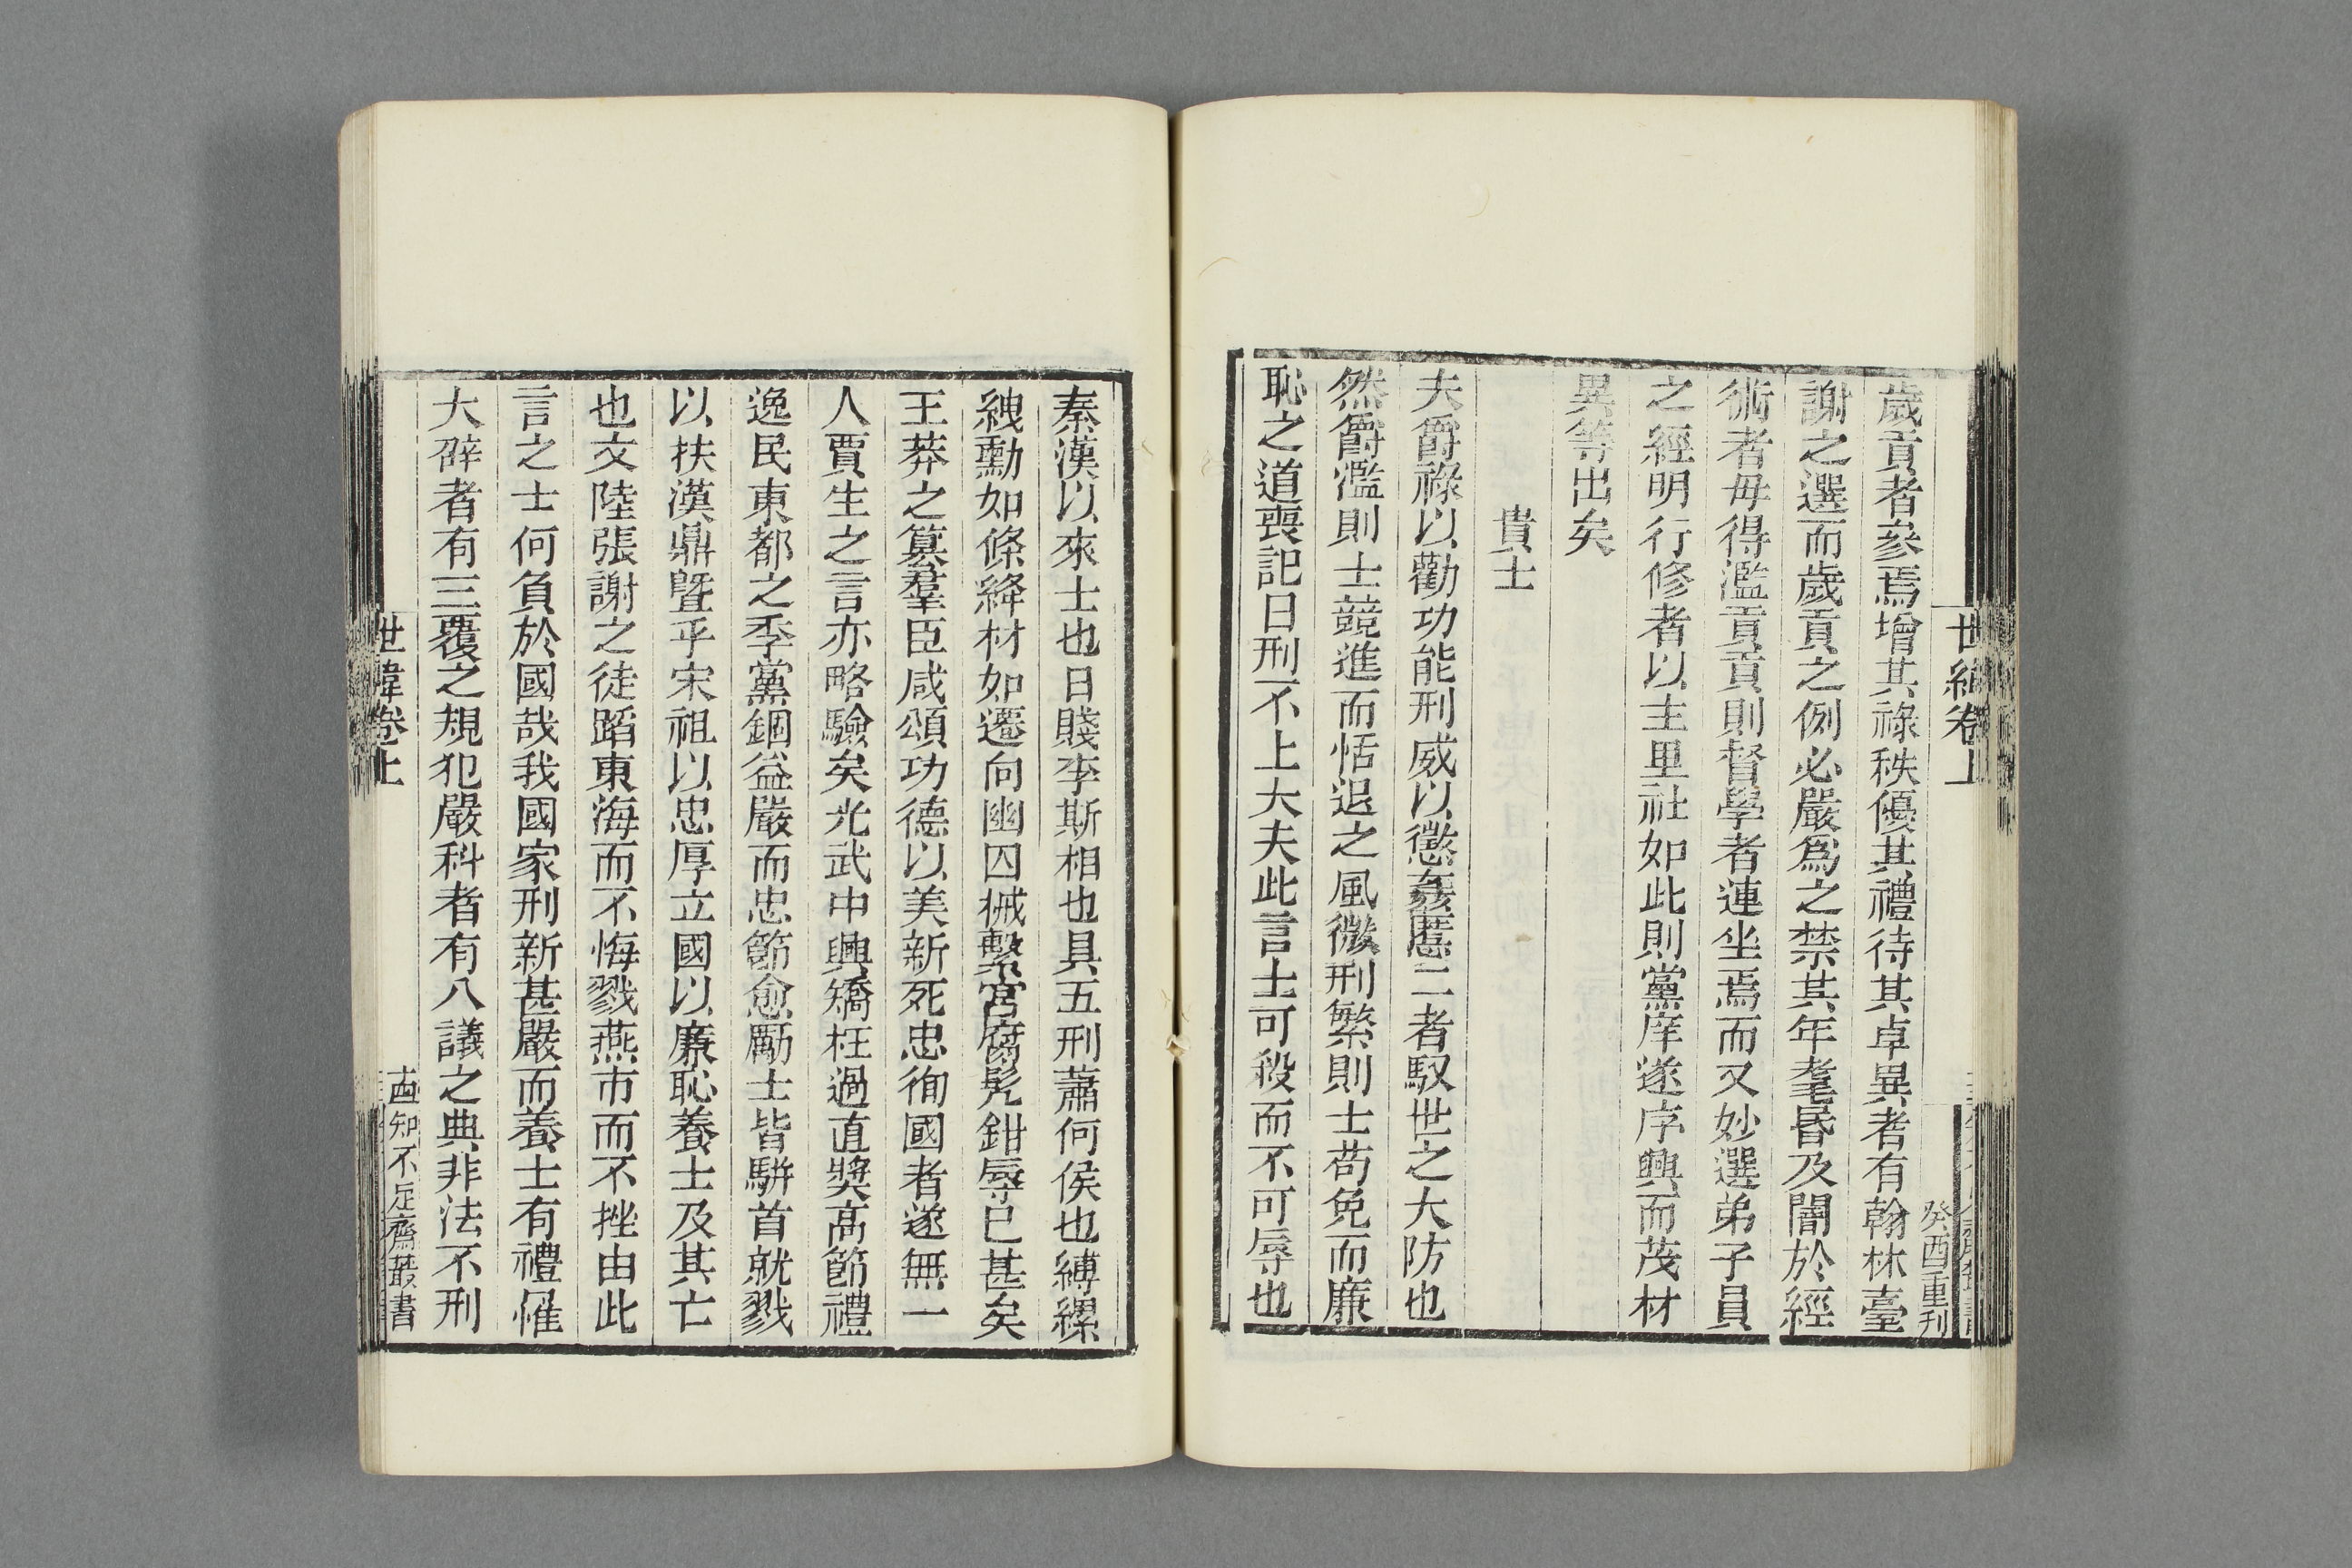 世緯卷上
癸酉重刊
歲貢者參焉增其祿秩優其禮待其卓異者有翰林臺
謝之選而歲貢之例必嚴爲之禁其年耄昬及闇於經
術者毋得濫貢貢則督學者連坐焉而又妙選弟子員
之經明行修者以主里社如此則黨庠遂序興而茂材
異等出矣
貴士
夫爵祿以勸功能刑威以懲姦慝二者馭世之大防也
然爵濫則士競進而恬退之風微刑繁則士苟免而廉
恥之道喪記曰刑不上大夫此言士可殺而不可辱也
秦漢以來士也日賤李斯相也具五刑蕭何侯也縛縲
絏勳如絛絳材如遷向幽囚械繫宮腐髡鉗辱已甚矣
王莽之篡羣臣咸頌功德以美新死忠徇國者遂無一
人賈生之言亦略驗矣光武中興矯枉過直奬高節禮
逸民東都之季黨錮益嚴而忠節愈勵士皆駢首就戮
以扶漢鼎曁乎宋祖以忠厚立國以廉恥養士及其亡
也文陸張謝之徒蹈東海而不悔戮燕市而不挫由此
言之士何負於國哉我國家刑新甚嚴而養士有禮惟
大辟者有三覆之規犯嚴科者有八議之典非法不刑
世緯卷上
知不足齋叢書